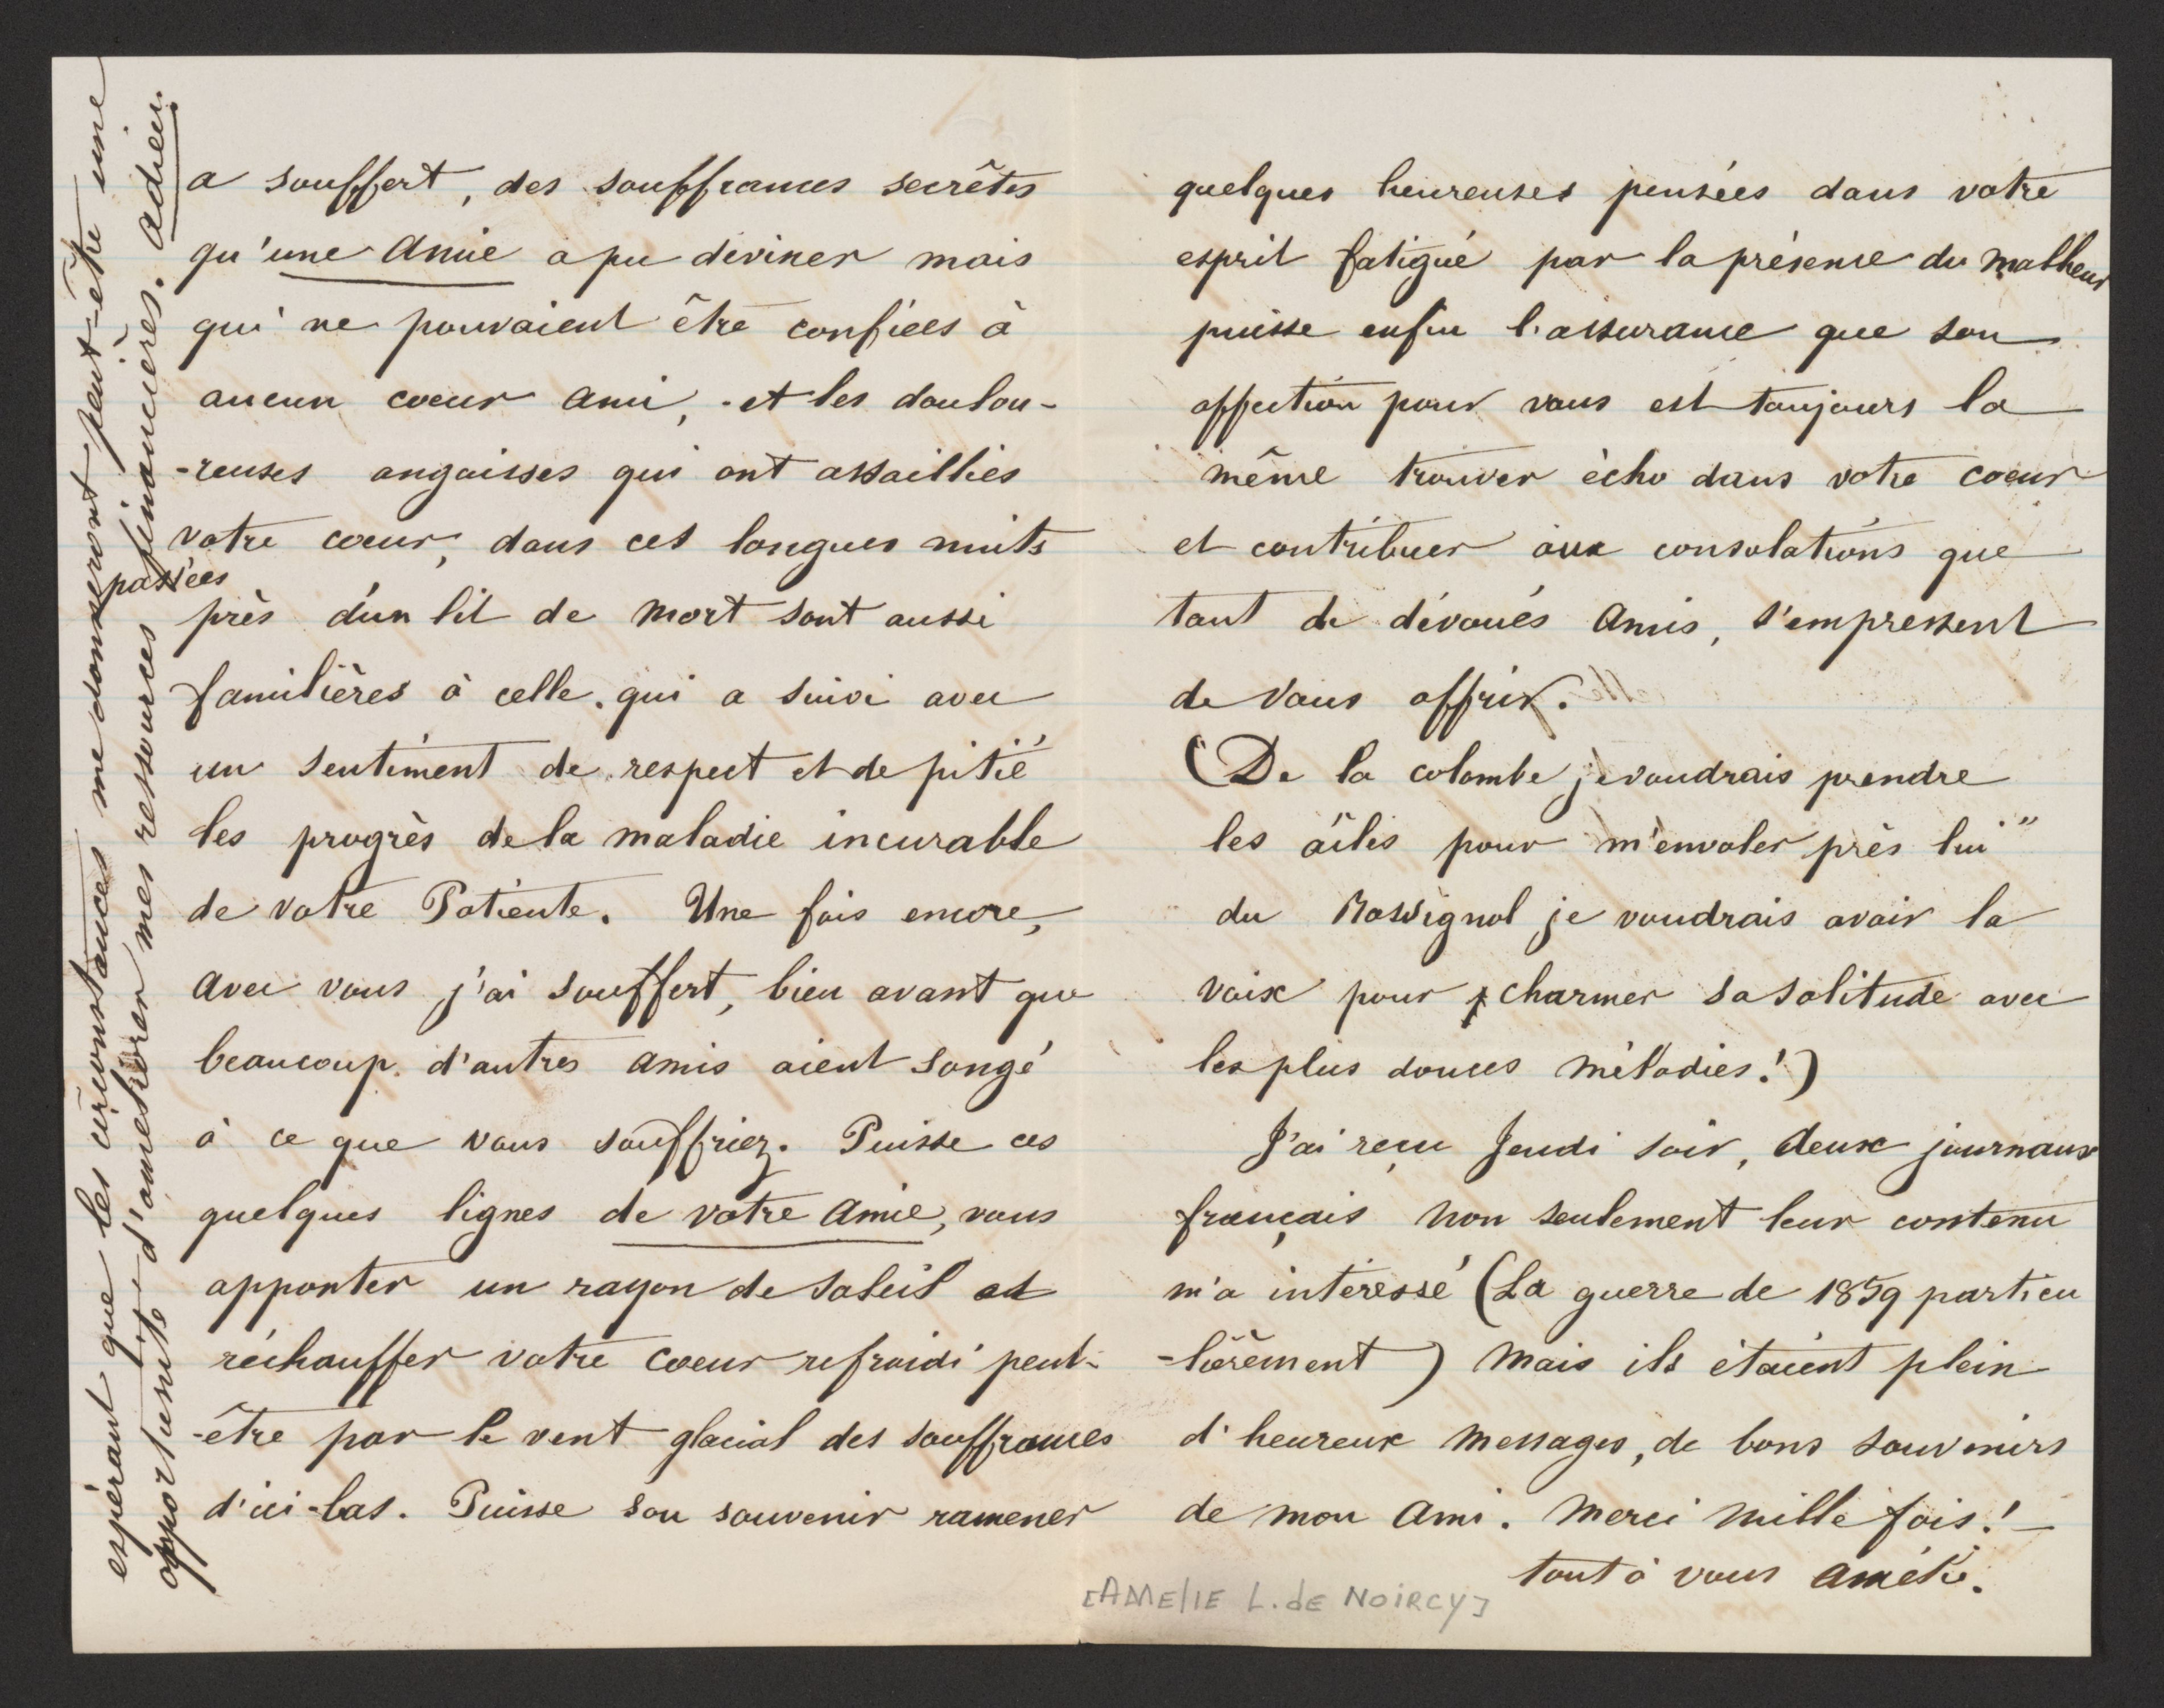 a souffert, des souffrances secrêtes
qu'une Amie a pu deviner mais
qui ne pouvaient être confiées à
aucun coeur ami, et les doulou-
-reuses angoisses qui ont assaillies
votre coeur, dans ces longues nuits
passées
près d'un lit de mort sont aussi
familières à celle qui a suivi avec
un sentiment de respect et de pitié
les progrès de la maladie incurable
de votre Patiente. Une fois encore,
avec vous j'ai souffert, bien avant que
beaucoup d'autres amis aient songé
à ce que vous souffriez. Puisse ces
quelques lignes de votre amie, vous
apporter un rayon de soleil et
réchauffer votre coeur refroidi peut-
-être par le vent glacial des souffrances
d'ici-bas. Puisse son souvenir ramener
espérant que les circonstances me donneront peut-être une
opportunité d'améliorer mes ressources financières. adieu.
quelques heureuses pensées dans votre
esprit fatigué par la présence du malheur
puisse enfin l'assurance que son
affection pour vous est toujours la
même trouver écho dans votre coeur
et contribuer aux consolations que
tant de dévoués amis, s'empressent
de vous offrir.
(De la colombe je voudrais prendre
les ailes pour m'envoler près lui"
du Rossignol je voudrais avoir la
voix pour charmer sa solitude avec
les plus douces mélodies!)
J'ai reçu Jeudi soir, deux journaux
français non seulement leur contenu
m'a intéressé (La guerre de 1859 particu
-lièrement) Mais ils étaient plein
d'heureux messages, de bons souvenirs
de mon Ami. Merci mille fois! -
tout à vous Amélie.
[AMElIE L. dE NOiRCY]